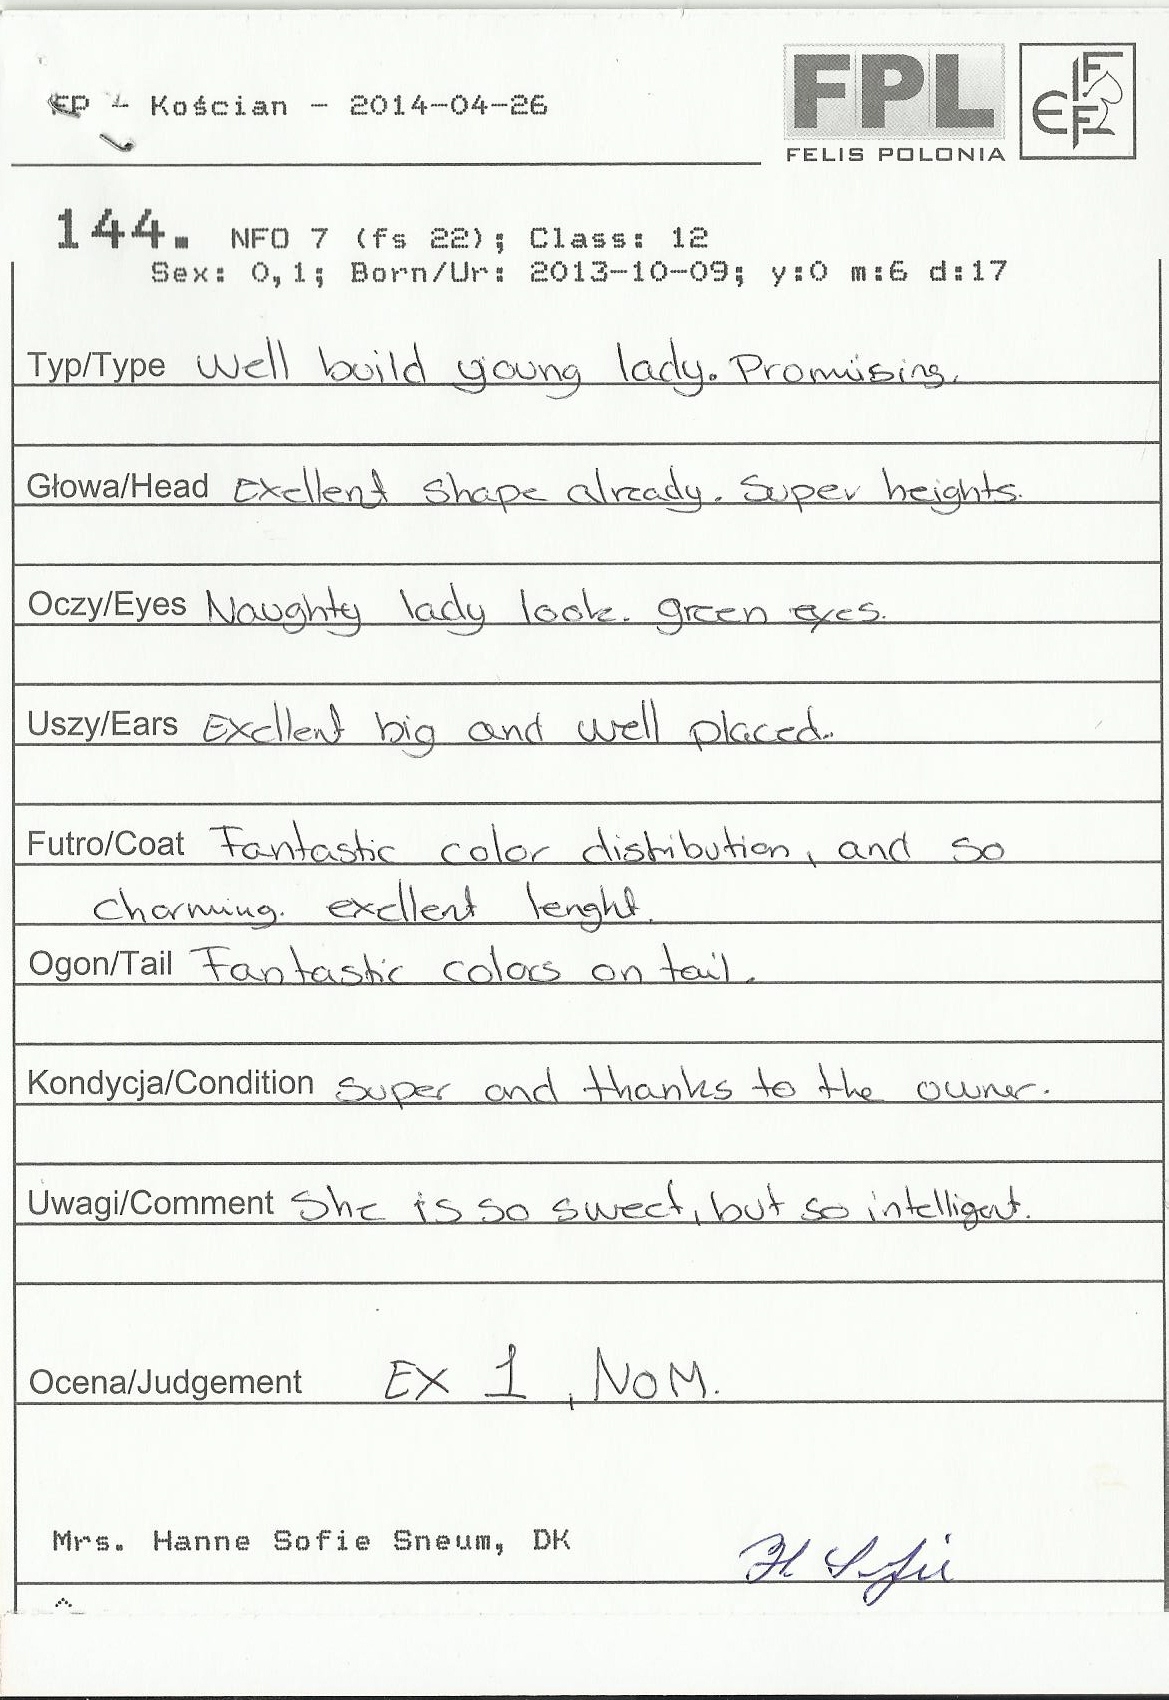 FP - Kościan - 2014-04-26
FPL
FELIS POLONIA
FIFe
144. NFO 7 (fs 22); Class: 12
Sex: 0,1; Born/Ur: 2013-10-09; y:0 m:6 d:17
Typ/Type Well build young lady. Promising.
Głowa/Head Exellent shape already. Super heights.
Oczy/Eyes Naughty lady look. green eyes.
Uszy/Ears Exellent big and well placed.
Futro/Coat Fantastic color distribution, and so
charming. exellent lenght.
Ogon/Tail Fantastic colors on tail.
Kondycja/Condition Super and thanks to the owner.
Uwagi/Comment She is so sweet, but so intelligent.
Ocena/Judgement EX 1, NOM.
Mrs. Hanne Sofie Sneum, DK
H Sofie